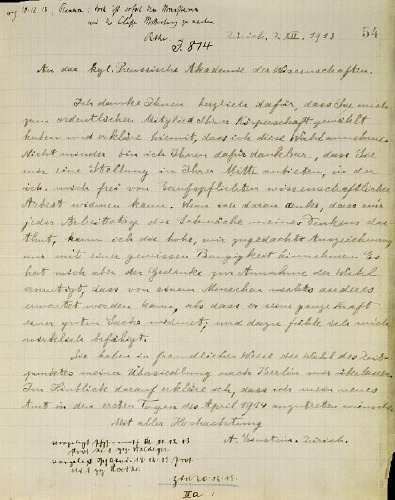 Zürich. 7. XII. 1913
54
An die kgl. Preussische Akademie der Wissenschaften.
Ich danke Ihnen herzlich dafür, dass Sie mich
zum ordentlichen Mitglied Ihrer Körperschaft gewählt
haben und erkläre hiemit, dass ich diese Wahl annehme.
Nicht minder bin ich Ihnen dafür dankbar, dass Sie
mir eine Stellung in Ihrer Mitte anbieten, in der
ich mich frei von Berufspflichten wissenschaftlicher
Arbeit widmen kann. Wenn ich daran denke, dass mir
jeder Arbeitstag die Schwäche meines Denkens dar
thut, kann ich die hohe, mir zugedachte Auszeichnung
nur mit einer gewissen Bangigkeit hinnehmen. Es
hat mich aber der Gedanke zur Annahme der Wahl
ermutigt, dass von einem Menschen nichts anderes
erwartet werden kann, als dass er seine ganze Kraft
einer guten Sache widmet; und dazu fühle ich mich
wirklich befähigt.
Sie haben in freundlicher Weise die Wahl des Zeit-
punktes meiner Übersiedlung nach Berlin mir überlassen.
Im Hinblick darauf erkläre ich, dass ich mein neues
Amt in den ersten Tagen des April 1914 anzutreten wünsche.
Mit aller Hochachtung
A. Einstein. Zürich.